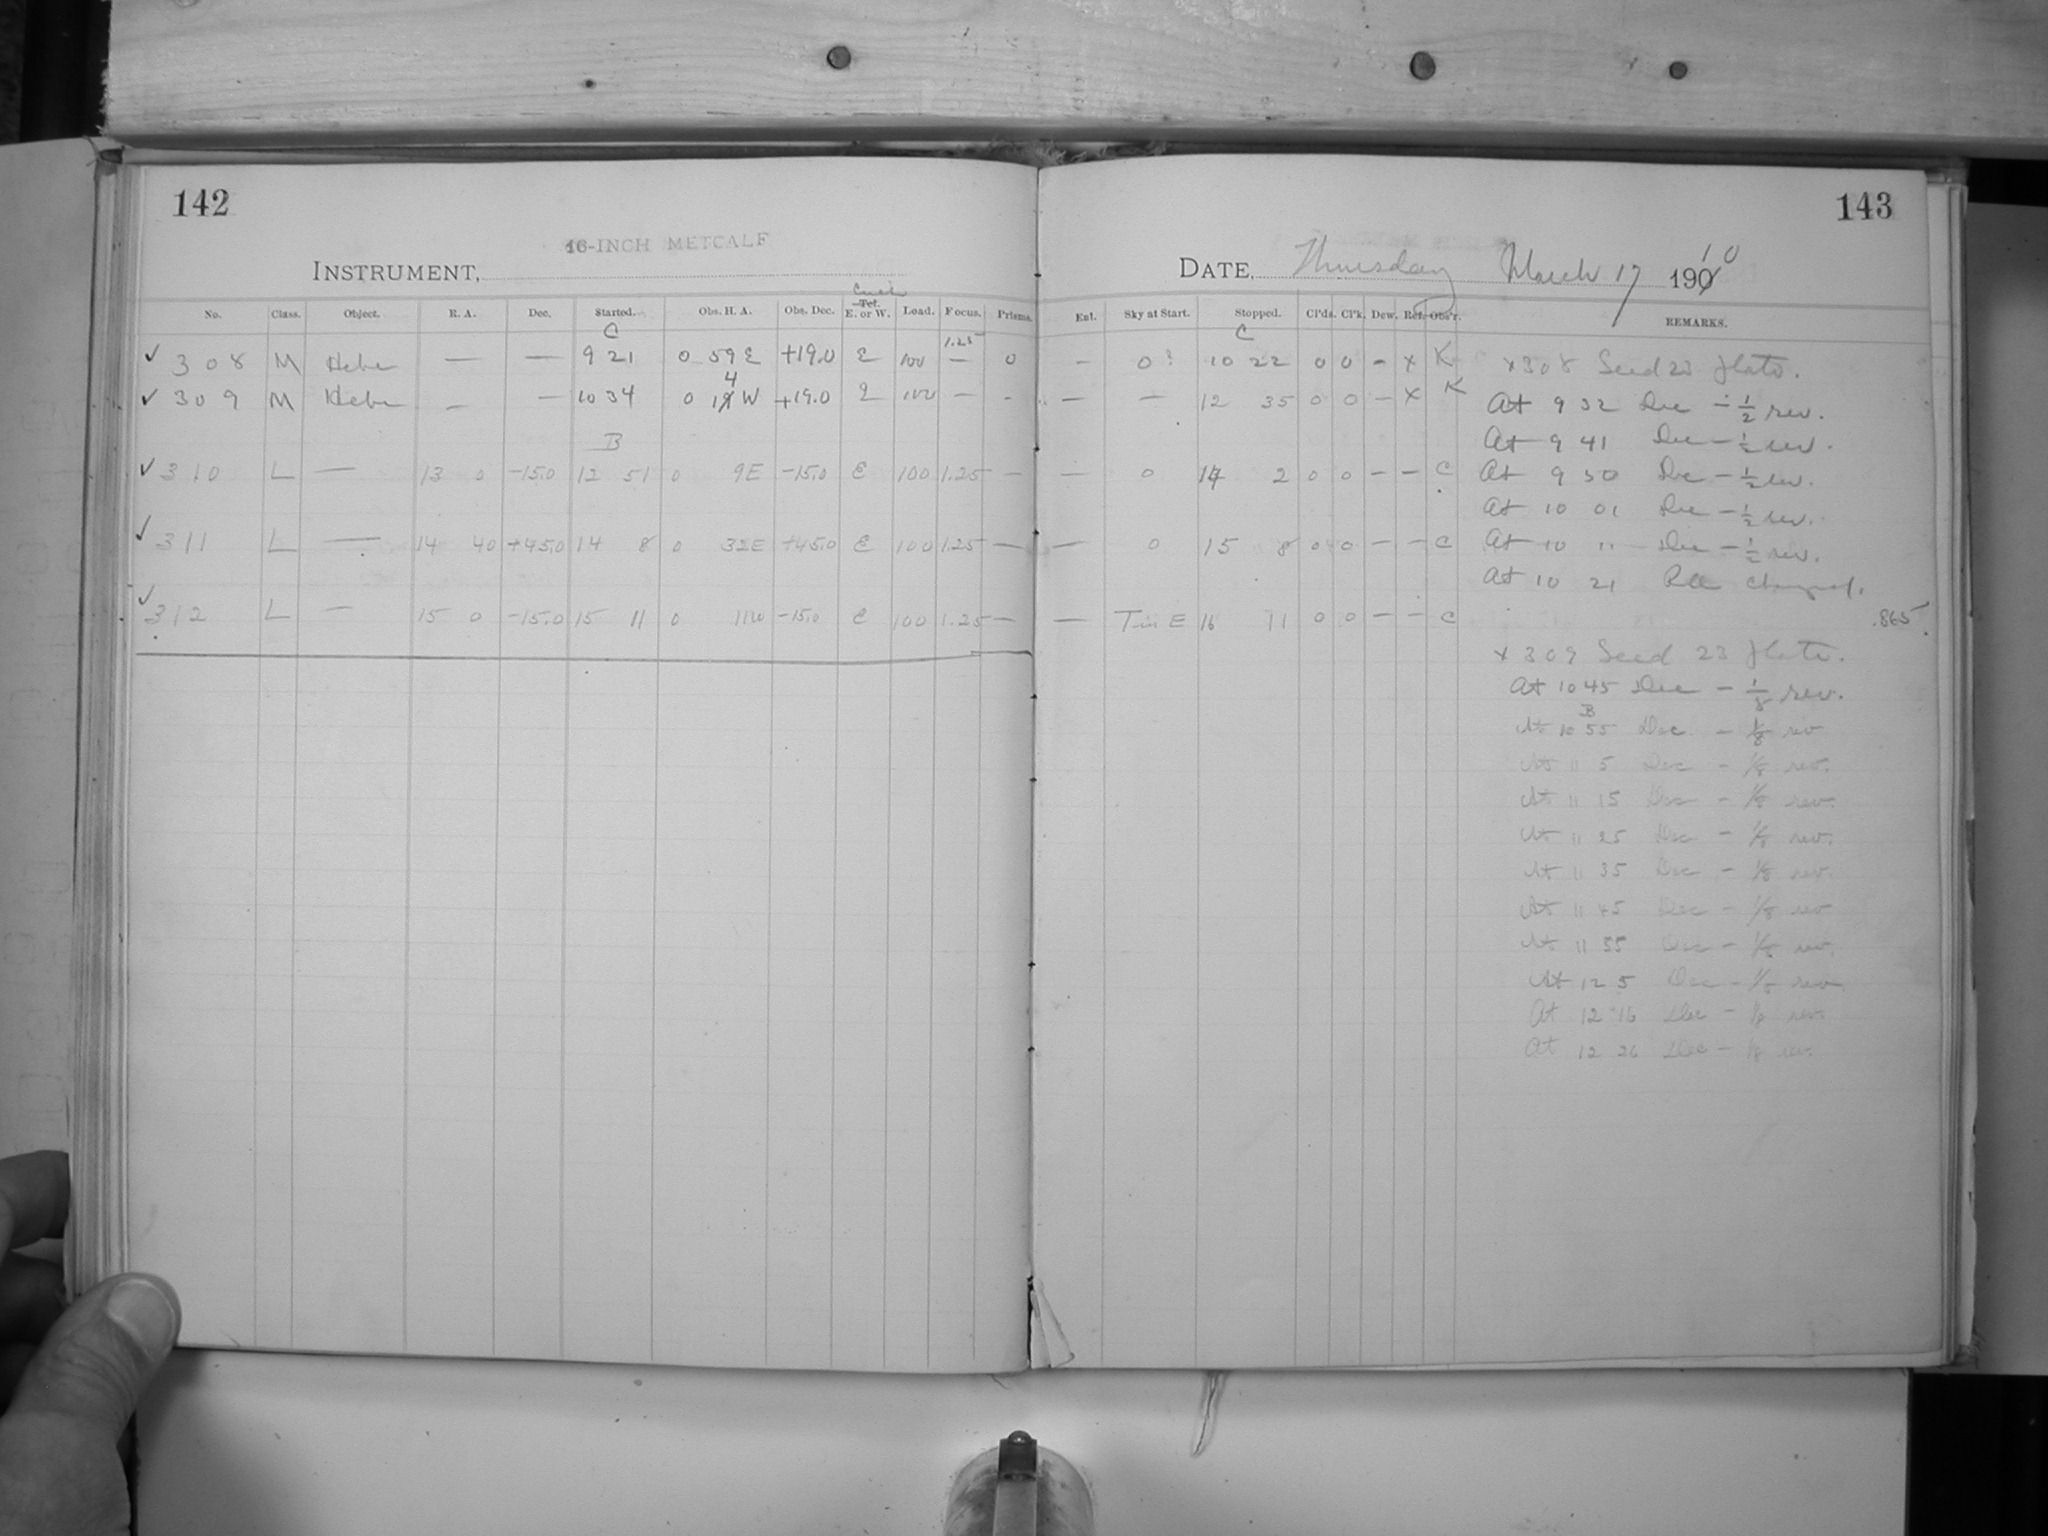 142
16-INCH METCALF
INSTRUMENT,
No. Class. Object. R. A. Dec. Started. Obs. H. A. Obs. Dec. Tel. E. or W. Load. Focus. Prisms.
C 1.25
✓ 308 M Hebe — — 9 21 0 59 E +19.0 E 100 — 0
✓ 309 M Hebe — — 10 34 0 14 W +19.0 E 100 — -
B
✓ 310 L — 13 0 -15.0 12 51 0 9E -15.0 E 100 1.25 —
✓ 311 L — 14 40 +45.0 14 8 0 32E +45.0 E 100 1.25 —
✓ 312 L — 15 0 -15.0 15 11 0 11W -15.0 E 100 1.25 —
143
DATE, Thursday March 17 1910
Ent. Sky at Start. Stopped. Cl'ds. Cl'k. Dew. Ref. Obs'r. REMARKS.
C
— 0? 10 22 0 0 - x K x308 Seed 23 plate.
— — 12 35 0 0 — x K At 9 32 Dec - 1/2 rev.
At 9 41 Dec - 1/2 rev.
— 0 14 2 0 0 — — C At 9 50 Dec - 1/2 rev.
At 10 01 Dec - 1/2 rev.
— 0 15 8 0 0 — — C At 10 11 Dec - 1/2 rev.
At 10 21 changed.
— E 16 11 0 0 — — C .865
x309 Seed 23 plate.
At 10 45 Dec - 1/8 rev.
B
At 10 55 Dec - 1/8 rev
At 11 5 Dec - 1/8 rev.
At 11 15 Dec - 1/8 rev.
At 11 25 Dec - 1/8 rev.
At 11 35 Dec - 1/8 rev.
At 11 45 Dec - 1/8 rev
At 11 55 Dec - 1/8 rev.
At 12 5 Dec - 1/8 rev
At 12 16 Dec - 1/8 rev
At 12 26 Dec - 1/8 rev.